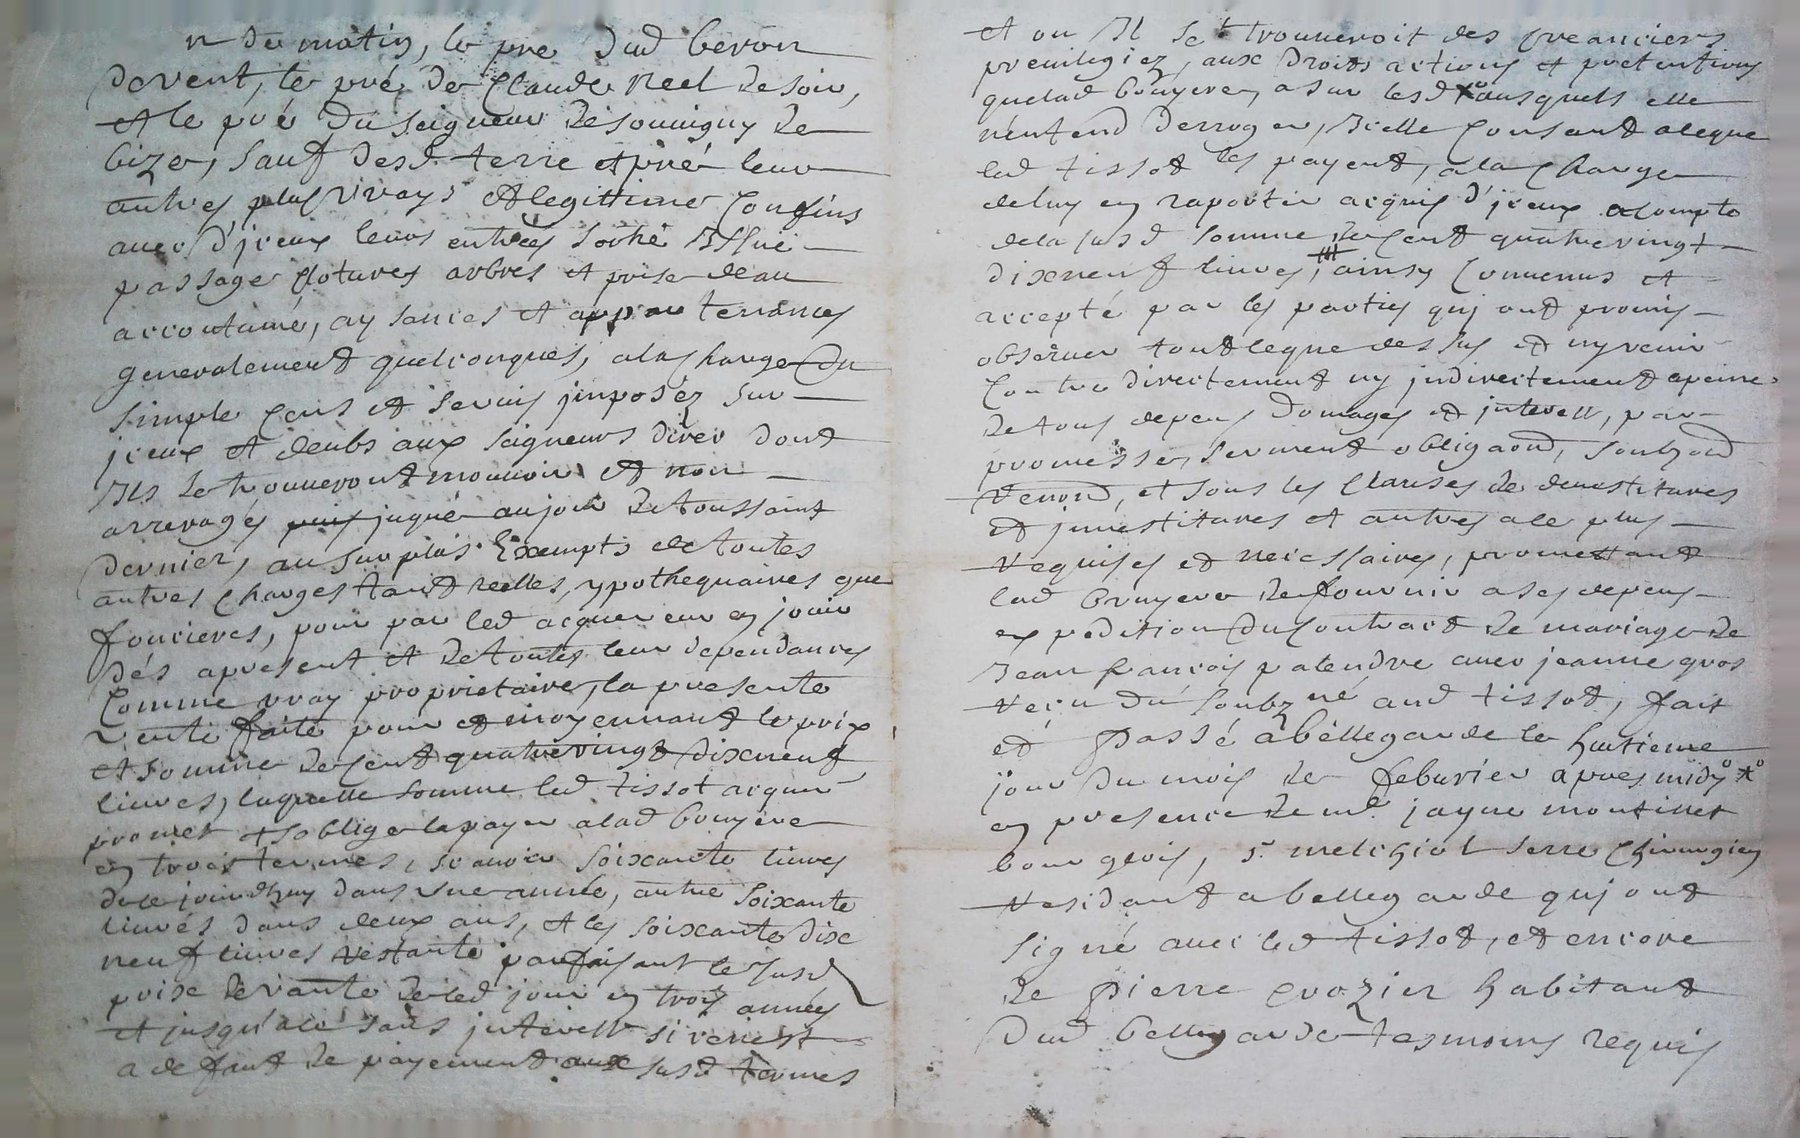 n du matin, le pre dud beron
devent, le pré de Claude neel de soir,
et le pré du seigneur de souuigny de
bize, sauf desd. terre et pré leur
autres plus vrays et legittime Confins
auec d'jceux leurs entrées sortie
passage Clotures arbres et prise deau
accoutumé, aysances et appartenances
generalement quelconques, ala charge du
simple cens et seruis jmposéz sur
jceux et deubs aux seigneurs direc dont
Ils se trouueront mouuoir et non
arreragés jusque aujour de toussaint
dernier, au surplus Exempts de toutes
autres charges tant reelles, ypothequaires que
foncieres, pour par led acquereur en jouir
dés apresent et de toutes leur dependances
Comme vray proprietaire, la presente
vente faite pour et moyennant le prix
et somme de cent quatre vingt dixneuf
liures, laquelle somme led tissot acquer
promet et soblige la payer alad bruyere
en trois termes, scauoir soixante liures
de ce jourdhuy dans vne année, autre soixante
liures dans deux ans, et les soixante dix
neuf liures restante parfaisant le susd
prix de vante de led jour en trois années
et jusqu'alé sans jnterest si ce nest
a defaut de payement aux susd termes
et ou Il se trouueroit des creanciers
preuilegiez, aux droits actions et pretentions
quelad bruyere a sur lesd X ausquels elle
n'entend derroger, Icelle Consant aleque
led tissot les payent, ala charge
deluy en raporter acquis d'jceux acompte
dela susd somme de cent quatre vingt
dixneuf liures, ainsy Conuenus et
accepté par les parties quj ont promis
obseruer tout leque dessus et ny venir
Contre directement ny jndirectement apeine
de tous depens domages et jnterest, par
promesse, serment obligaond, soubzond
renond, et sous les clauses de deuestitures
et jnuestitures et autres ale plus
requises et neicessaires, promettant
lad bruyere de fournir a ses depens
expedition du Contract de mariage de
Jean francois palendre auec jeanne gros
recu du soubzné aud tissot, fait
et passé abellegarde le huitieme
jour du mois de feburier apres midy
en presence de mr jayme montinet
bourgeois, sr. melchiol serre chirurgien
residant abellegarde quj ont
signé auec led tissot, et encore
de pierre crozier habitant
dud bellegarde tesmoins requis